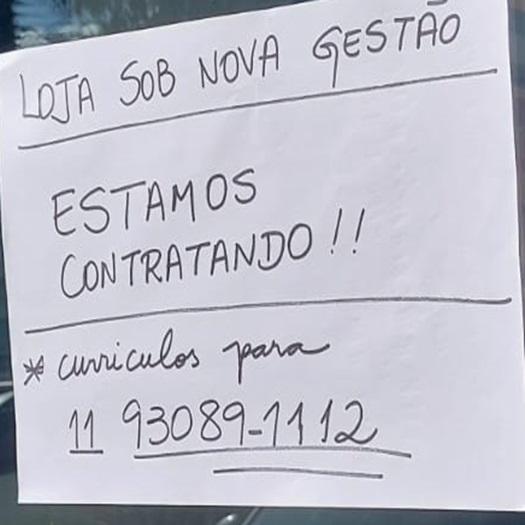 LOJA SOB NOVA GESTÃO
ESTAMOS
CONTRATANDO!!
* curriculos para
11 93089-1112